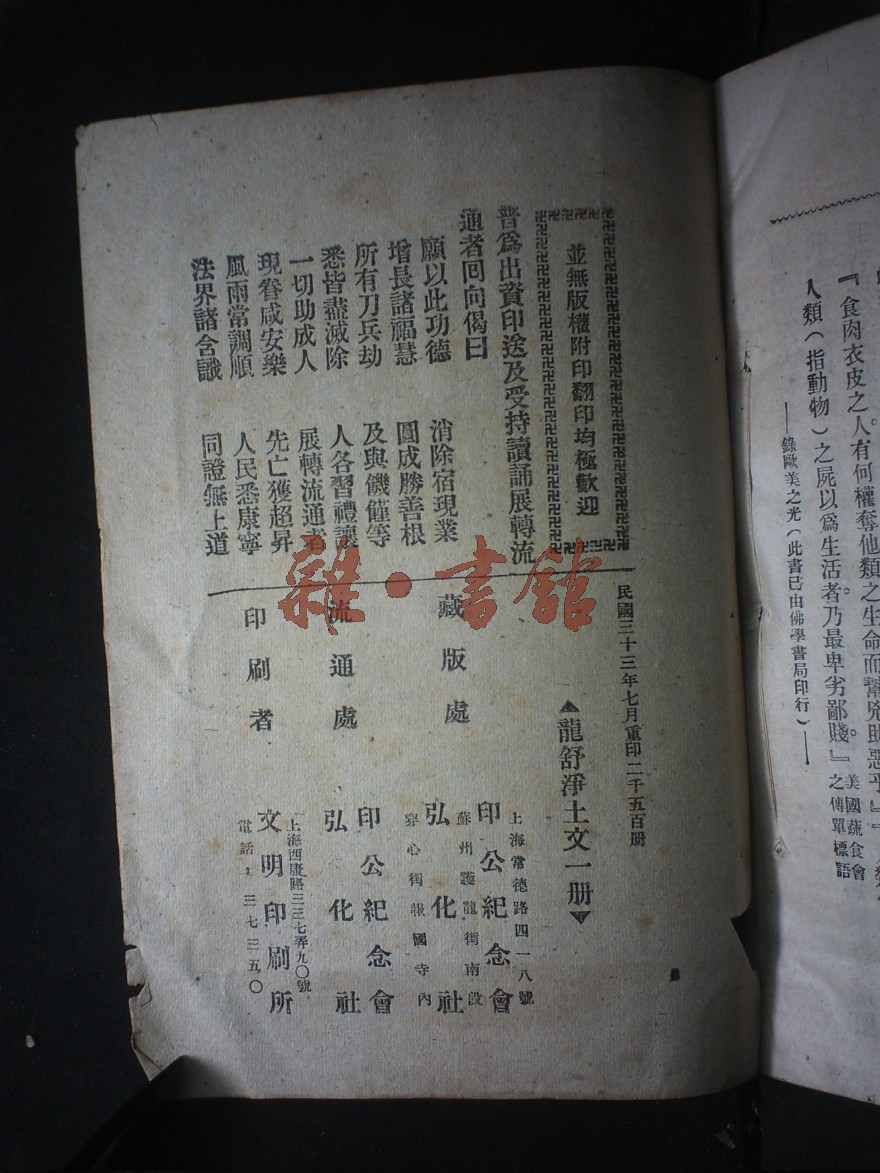 『食肉衣皮之人有何權奪他類之生命而幫兇助惡乎』
人類(指動物)之屍以爲生活者乃最卑劣鄙賤。』美國蔬食會之傳單標語
——錄歐美之光(此書已由佛學書局印行)——
並無版權附印翻印均極歡迎
普爲出資印送及受持讀誦展轉流
通者回向偈曰
願以此功德 消除宿現業
增長諸福慧 圓成勝善根
所有刀兵劫 及與饑饉等
悉皆盡滅除 人各習禮讓
一切助成人 展轉流通者
現眷咸安樂 先亡獲超昇
風雨常調順 人民悉康寧
法界諸含識 同證無上道
民國三十三年七月重印二千五百册
龍舒淨土文一册
藏版處
上海常德路四一八號
印公紀念會
蘇州護龍街南段
弘化社
穿心街報國寺內
流通處
印公紀念會
弘化社
印刷者
上海西康路三三七弄九〇號
文明印刷所
電話:三七三五〇
雜·書館